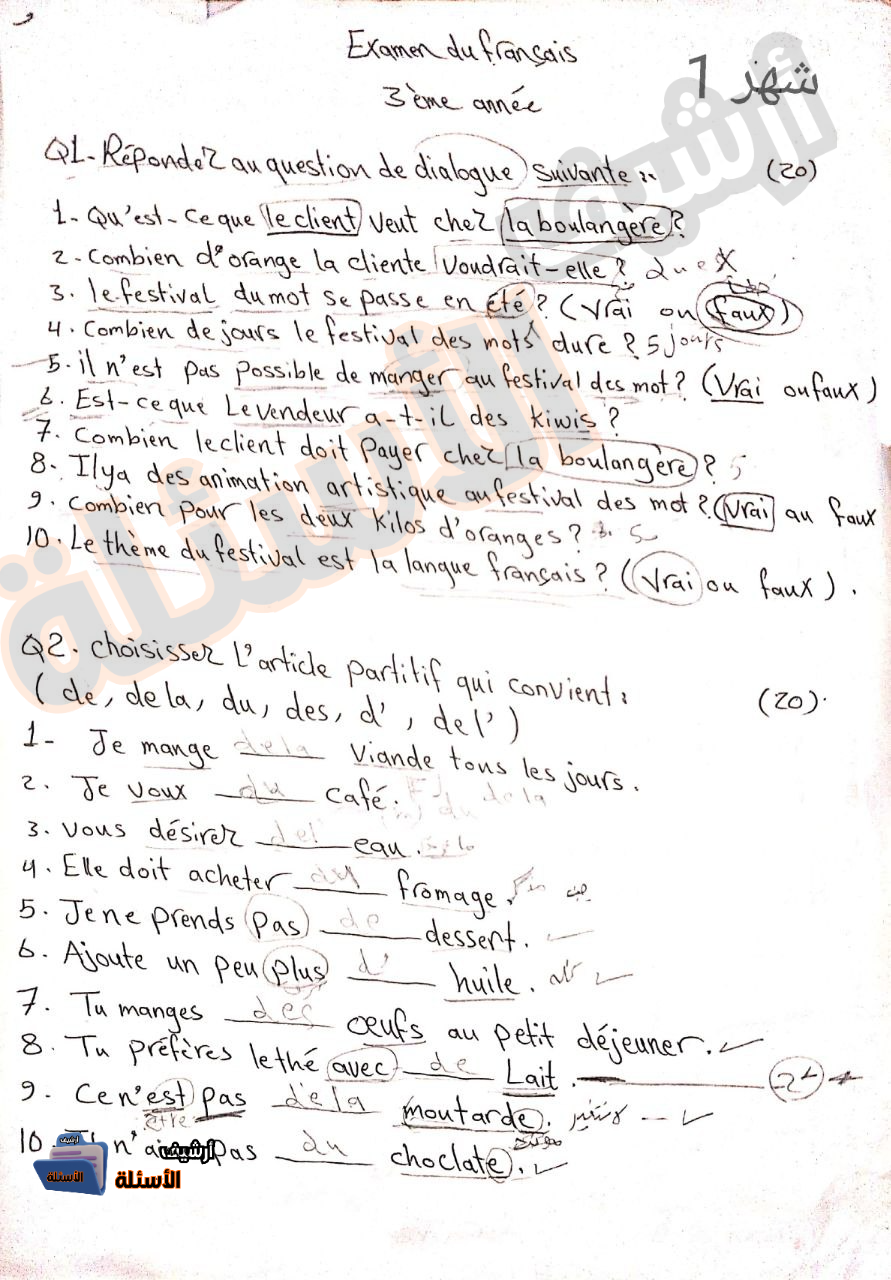 Examen du français
شهر 1
3ème année
Q1- Répondez au question de dialogue suivante :. (20)
1- Qu'est-ce que le client veut chez la boulangère?
2- Combien d'orange la cliente voudrait-elle? Quex
3. le festival du mot se passe en été? (Vrai ou faux)
4. Combien de jours le festival des mots dure? 5 jours
5- il n'est pas possible de manger au festival des mot? (Vrai ou faux)
6. Est-ce que Le vendeur a-t-il des kiwis?
7. Combien le client doit payer chez la boulangère? 5
8- Il ya des animation artistique au festival des mot? (Vrai au faux
9. Combien pour les deux kilos d'oranges? 5
10. Le thème du festival est la langue français? (Vrai ou faux).
Q2. choisisser L'article partitif qui convient:
(de, de la, du, des, d', del') (20).
1- Je mange de la viande tous les jours.
2. Je voux du café. de la
du
3. vous désirez del' eau.
4. Elle doit acheter du fromage.
5. Je ne prends pas de dessert.
6. Ajoute un peu plus d' huile.
7. Tu manges des œufs au petit déjeuner.
8. Tu préfères le thé avec de Lait.
9. Ce n'est pas de la moutarde.
être
10 n'ai pas du choclate.
أرشيف
الأسئلة
أرشيف
الأسئلة
أرشيف
الأسئلة